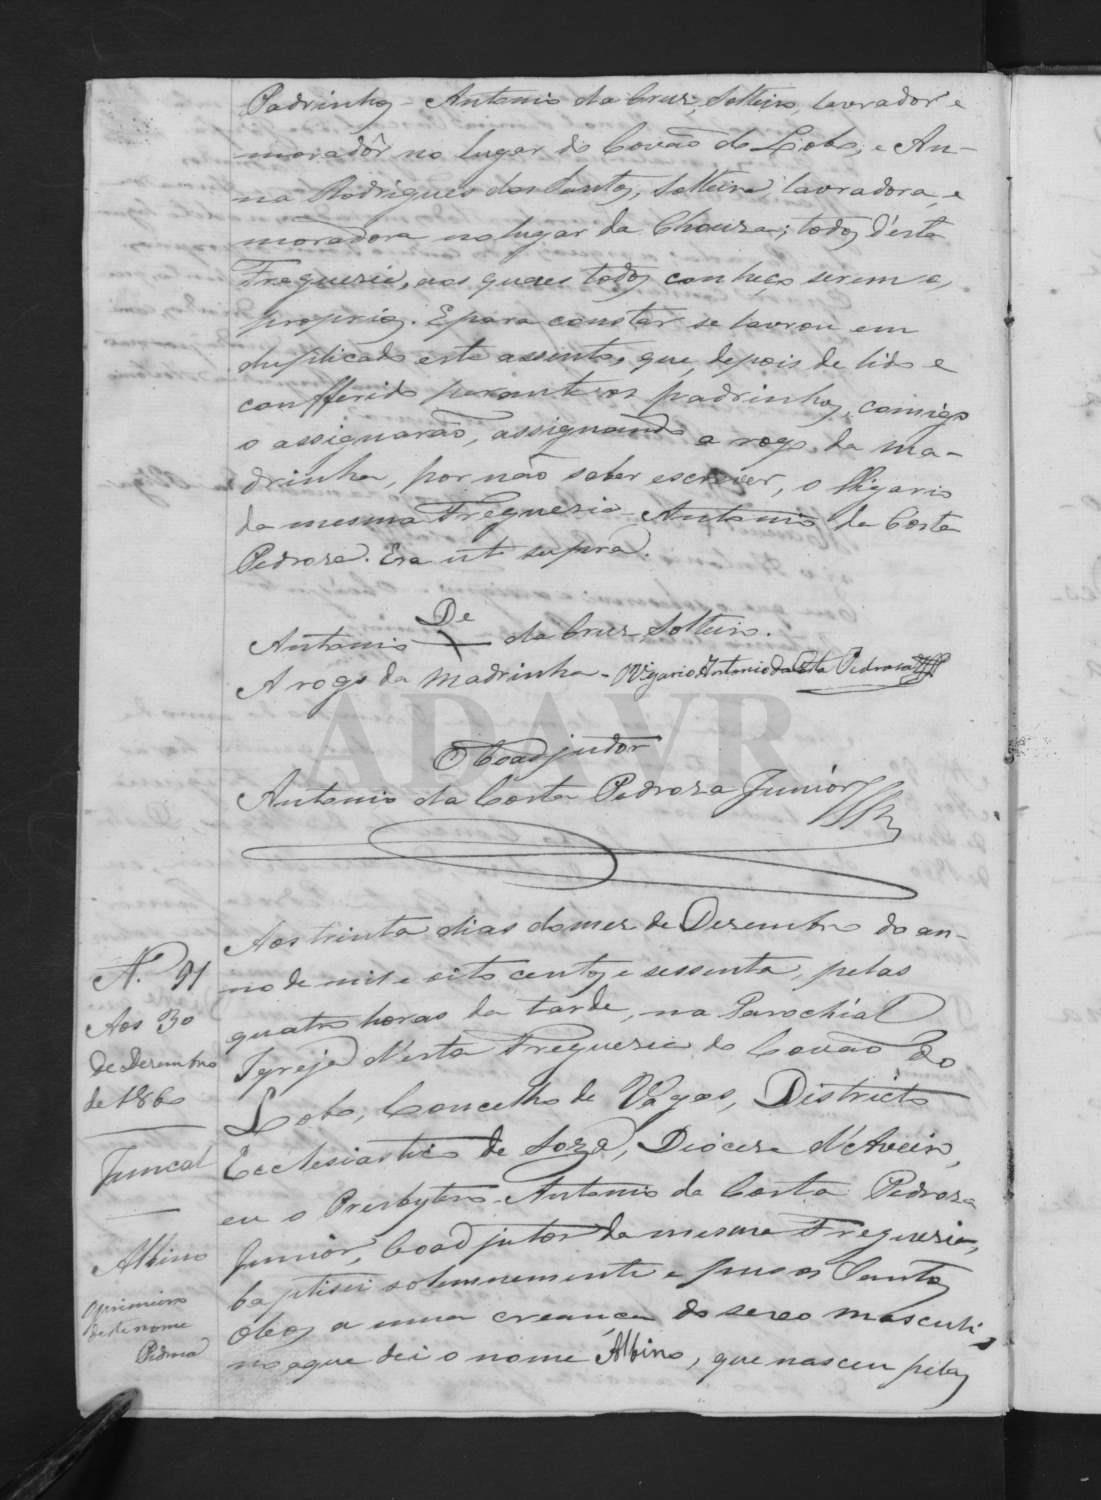 Padrinhos - Antonio da Cruz, Solteiro, lavrador e
moradôr no lugar do Covão do Lobo, e An-
na Rodrigues dos Santos, Solteira lavradora, e
moradora no lugar da Chouza; todos d'esta
Freguezia, aos quaes todos conheço serem os
proprios. E para constar se lavrou em
duplicado este assento, que, depois de lido e
confferido perante os padrinhos, comigo
o assignarão, assignando a rogo da ma-
drinha, por não saber escrever, o Vigario
da mesma Freguezia Antonio da Costa
Pedroza. Era ut supra.
De
Antonio da Cruz, Solteiro.
A rogo da Madrinha - O Vigario Antonio da Costa Pedroza
O Coadjudor
Antonio da Costa Pedroza Junior
ADAVR
N. 91
Aos 30
de Dezembro
de 1860
Juncal
Albino
O primeiro
deste nome
Pedroza
Aos trinta dias do mez de Dezembro do an-
no de mil e oito centos e sessenta, pelas
quatro horas da tarde, na Parochial
Igreja d'esta Freguezia do Covão do
Lobo, Concelho de Vagos, Districto
Ecclesiastico de Soza, Diocese d'Aveiro,
eu o Presbytero Antonio da Costa Pedroza
Junior, Coadjutor da mesma Freguezia,
baptisei solemnemente e puz os Santos
Oleos a uma creança do sexo masculi-
no a que dei o nome Albino, que nasceu pelas